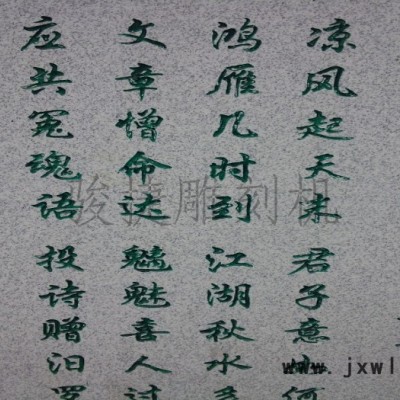 凉风起天末君子意如何
鸿雁几时到江湖秋水多
文章憎命达魑魅喜人过
应共冤魂语投诗赠汨罗
骏捷雕刻机
www.jxwl